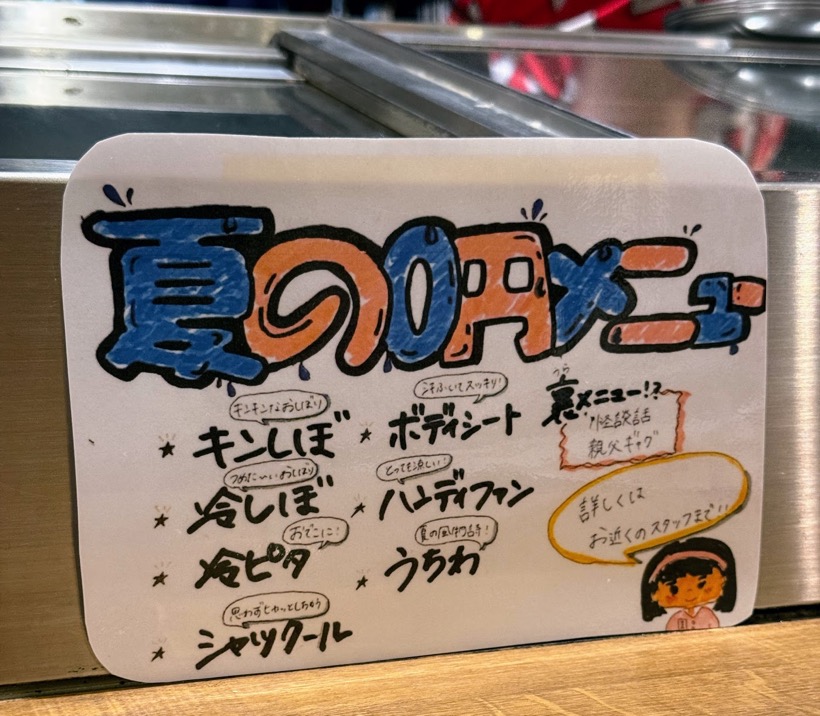 夏の0円メニュー
キンキンなおしぼり
★キンしぼ
つめた〜いおしぼり
★冷しぼ
おでこに!
★冷ピタ
思わずヒヤッとしちゃう
★シャツクール
汗ふいてスッキリ!
★ボディシート
とっても涼しい!
★ハンディファン
夏の風物詩!
★うちわ
うら
裏メニュー!?
怪談話
親父ギャグ
詳しくは
お近くのスタッフまで!!